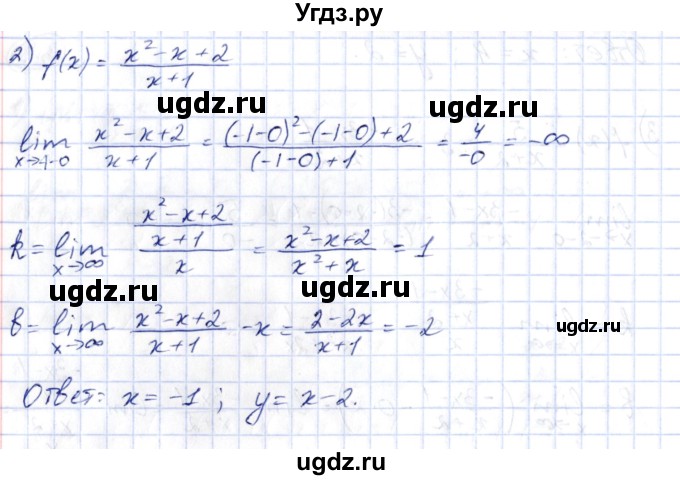 Угдз.ру
2) f(x) = (x² - x + 2)/(x + 1)
ugdz.ru ugdz.ru
lim x→-1-0 (x² - x + 2)/(x + 1) = ((-1-0)² - (-1-0) + 2)/((-1-0) + 1) = 4/-0 = -∞
ugdz.ru
k = lim x→∞ ((x² - x + 2)/(x + 1))/x = (x² - x + 2)/(x² + x) = 1
ugdz.ru ugdz.ru
b = lim x→∞ (x² - x + 2)/(x + 1) - x = (2 - 2x)/(x + 1) = -2
ugdz.ru
Ответ: x = -1 ; y = x - 2.
ugdz.ru
ugdz.ru